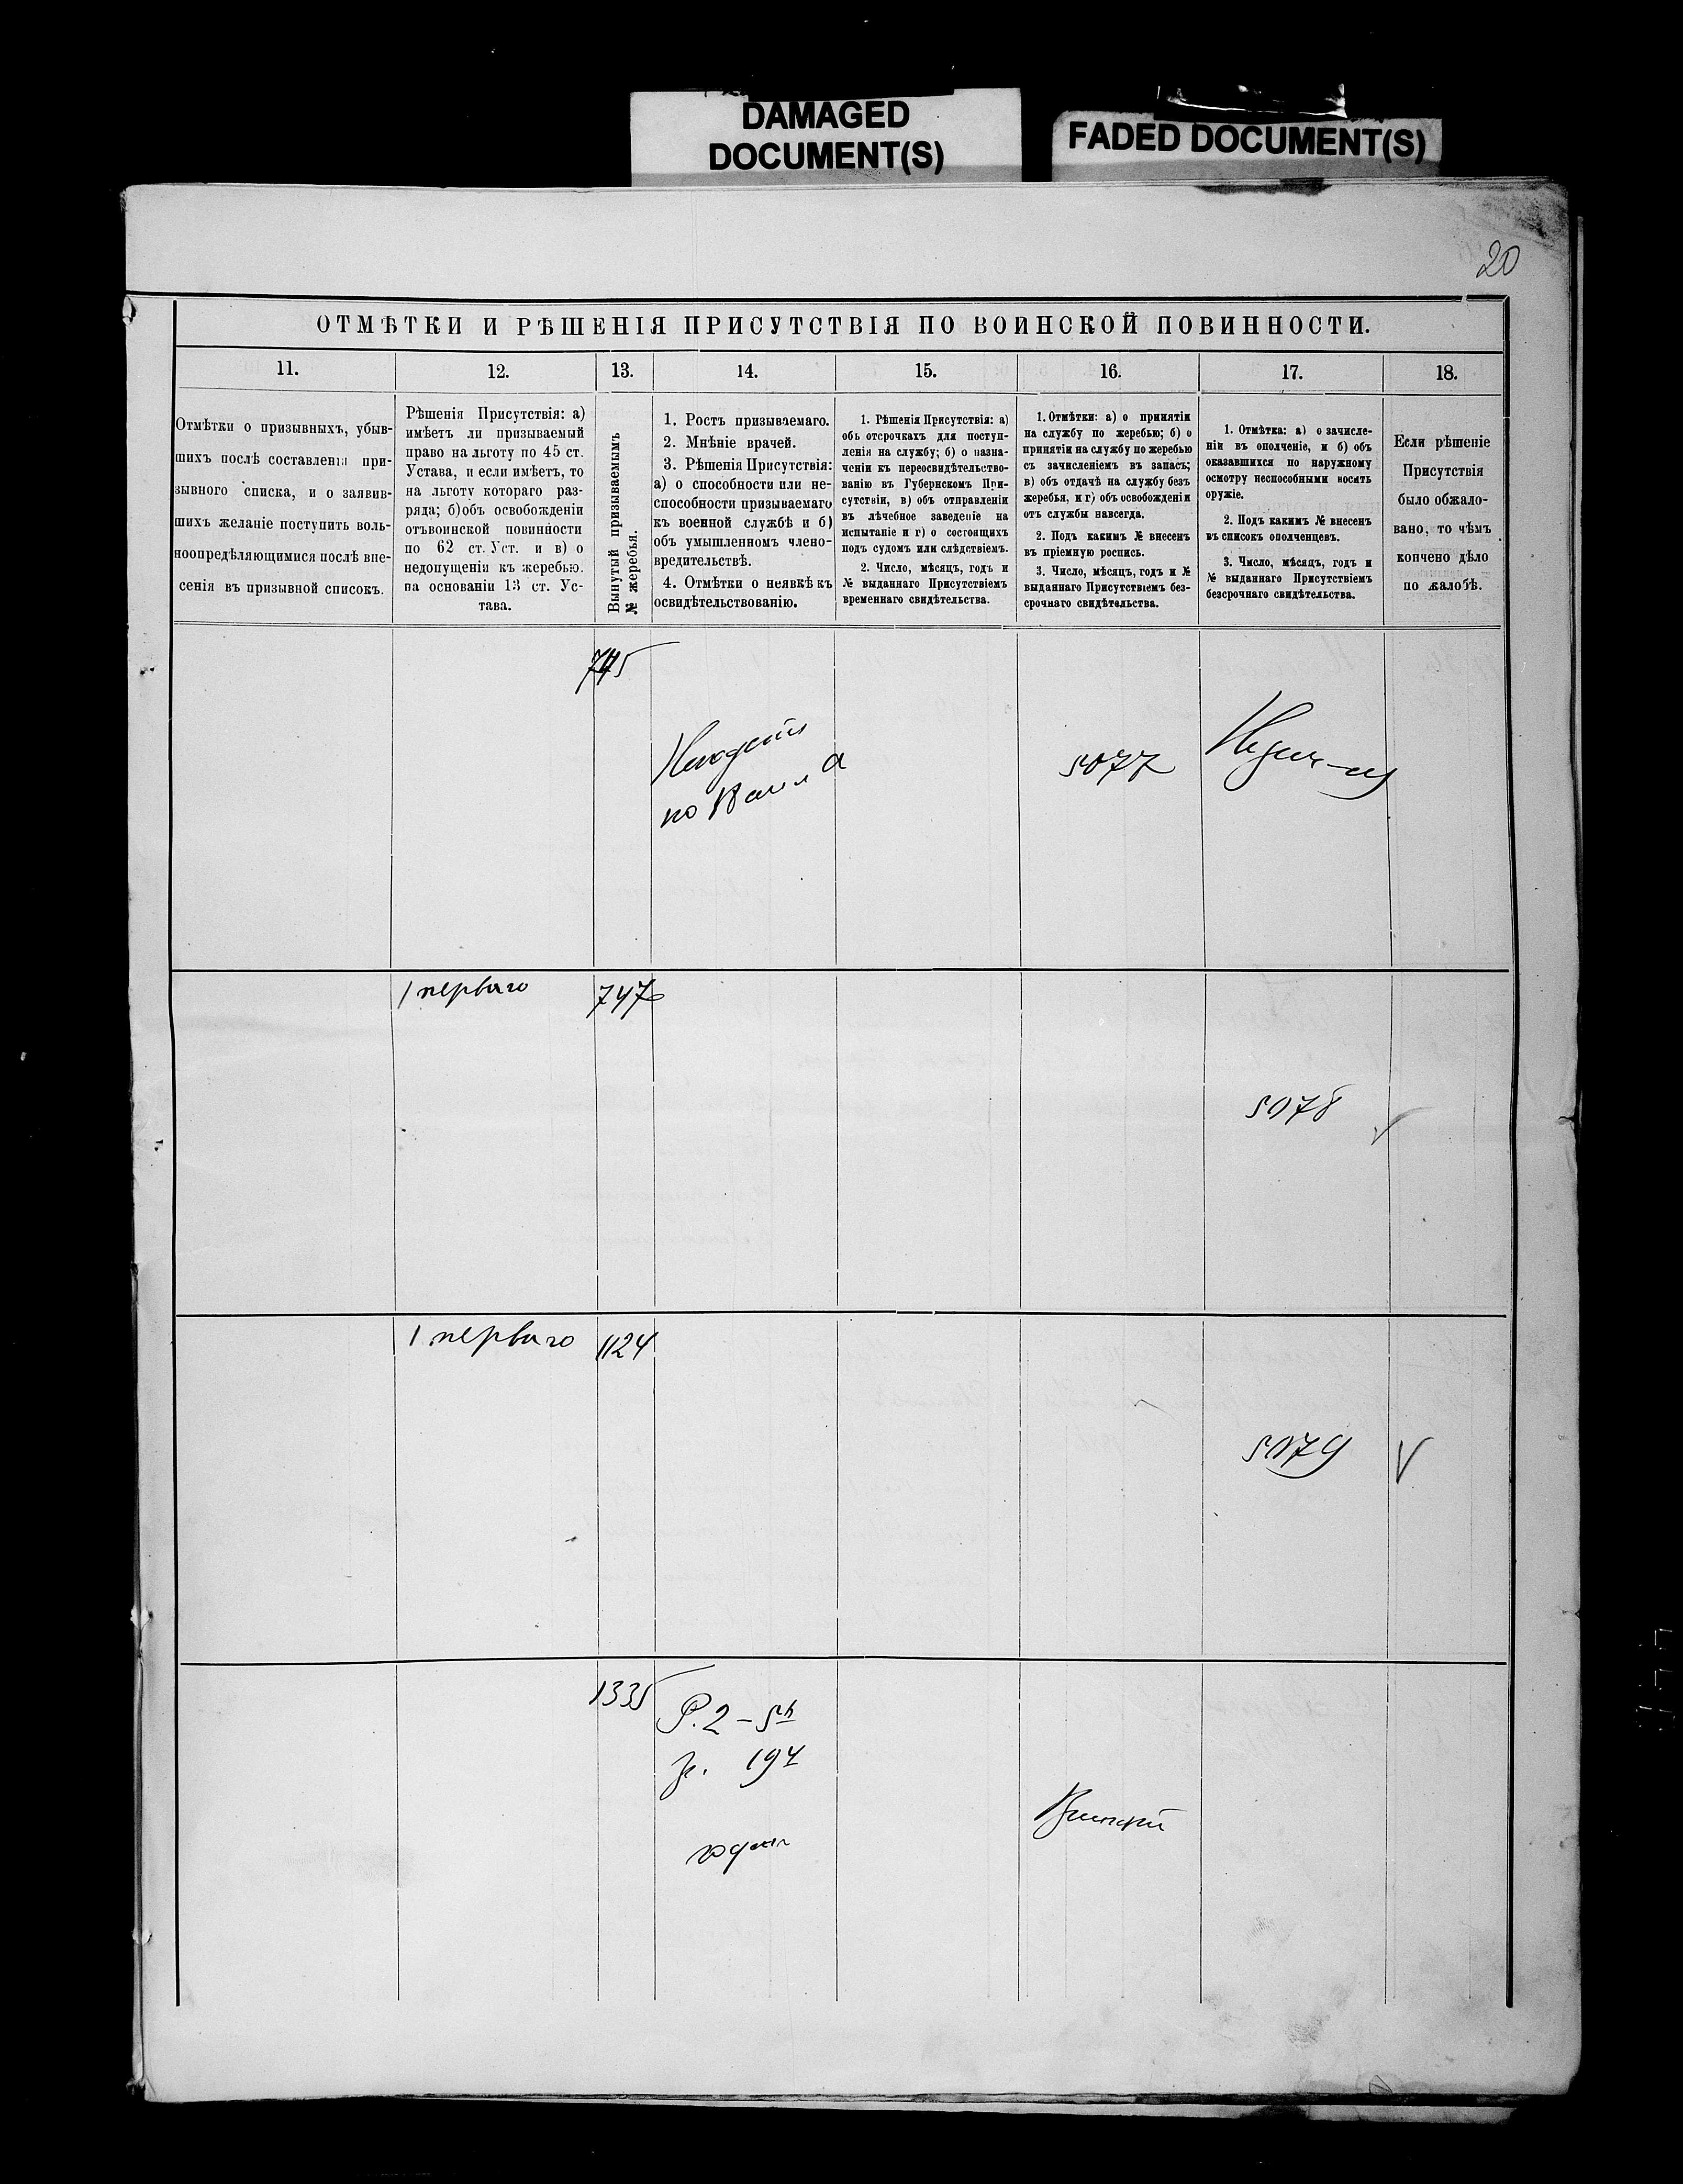 DAMAGED
DOCUMENT(S)
FADED DOCUMENT(S)
20
ОТМѢТКИ И РѢШЕНІЯ ПРИСУТСТВІЯ ПО ВОИНСКОЙ ПОВИННОСТИ.
11.
12.
13.
14.
15.
16.
17.
18.
Отмѣтки о призывныхъ, убыв-
шихъ послѣ составленія при-
зывного списка, и о заявив-
шихъ желаніе поступить воль-
ноопредѣляющимися послѣ вне-
сенія въ призывной списокъ.
Рѣшенія Присутствія: а)
имѣетъ ли призываемый
право на льготу по 45 ст.
Устава, и если имѣетъ, то
на льготу котораго раз-
ряда; б) объ освобожденіи
отъ воинской повинности
по 62 ст. Уст. и в) о
недопущеніи къ жеребью.
на основаніи 13 ст. Ус-
тава.
Вынутый призываемымъ
№ жеребья.
1. Ростъ призываемаго.
2. Мнѣніе врачей.
3. Рѣшенія Присутствія:
а) о способности или не-
способности призываемаго
къ военной службѣ и б)
объ умышленномъ члено-
вредительствѣ.
4. Отмѣтки о неявкѣ къ
освидѣтельствованію.
1. Рѣшенія Присутствія: а)
объ отсрочкахъ для поступ-
ленія на службу; б) о назна-
ченіи къ переосвидѣтельство-
ванію въ Губернскомъ При-
сутствіи, в) объ отправленіи
въ лѣчебное заведеніе на
испытаніе и г) о состоящихъ
подъ судомъ или слѣдствіемъ.
2. Число, мѣсяцъ, годъ и
№ выданнаго Присутствіемъ
временнаго свидѣтельства.
1. Отмѣтки: а) о принятіи
на службу по жеребью; б) о
принятіи на службу по жеребью
съ зачисленіемъ въ запасъ;
в) объ отдачѣ на службу безъ
жеребья, и г) объ освобожденіи
отъ службы навсегда.
2. Подъ какимъ № внесенъ
въ пріемную роспись.
3. Число, мѣсяцъ, годъ и №
выданнаго Присутствіемъ без-
срочнаго свидѣтельства.
1. Отмѣтка: а) о зачисле-
ніи въ ополченіе, и б) объ
оказавшихся по наружному
осмотру неспособными носить
оружіе.
2. Подъ какимъ № внесенъ
въ списокъ ополченцевъ.
3. Число, мѣсяцъ, годъ и
№ выданнаго Присутствіемъ
безсрочнаго свидѣтельства.
Если рѣшеніе
Присутствія
было обжало-
вано, то чѣмъ
кончено дѣло
по жалобѣ.
745
5077
1 перваго
747
5078
1 перваго
1124
5079
1335
Р. 2 – 5 h
г. 19 4
годенъ